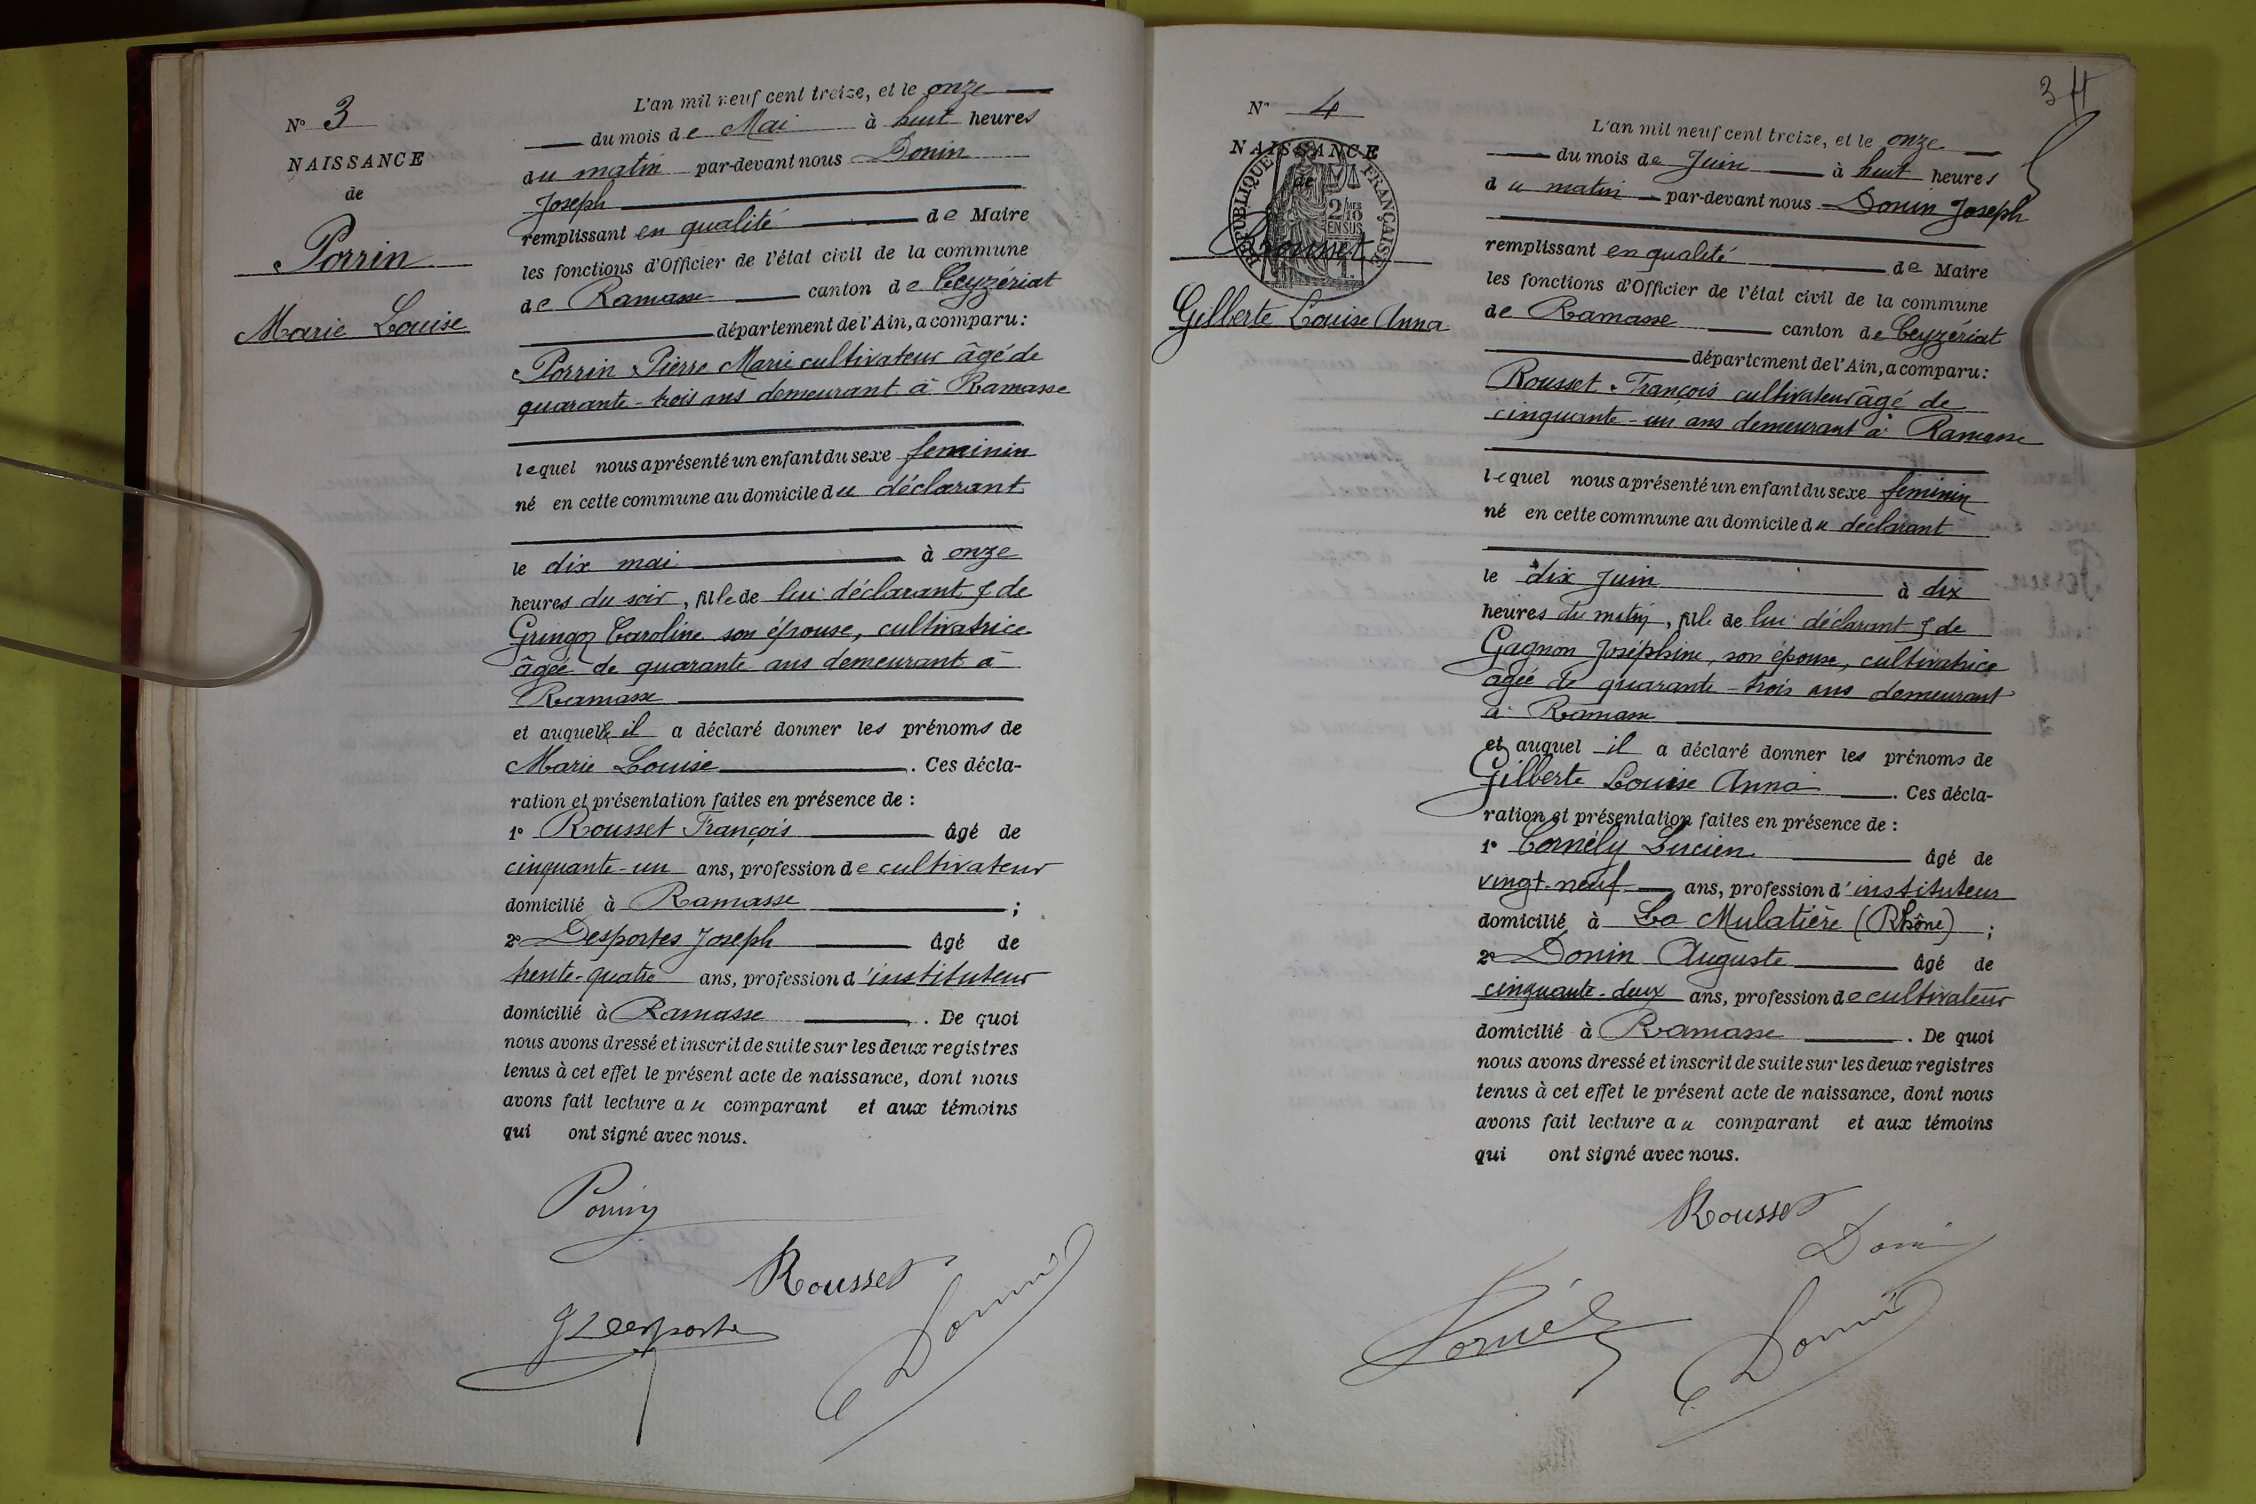 N° 3
NAISSANCE
de
Porrin
Marie Louise
L'an mil neuf cent treize, et le onze
du mois de Mai à huit heures
du matin par-devant nous Donin
Joseph
remplissant en qualité de Maire
les fonctions d'Officier de l'état civil de la commune
de Ramasse canton de Ceyzériat
département de l'Ain, a comparu:
Porrin Pierre Marie cultivateur âgé de
quarante-trois ans demeurant à Ramasse
lequel nous a présenté un enfant du sexe feminin
né en cette commune au domicile du déclarant
le dix mai à onze
heures du soir, fille de lui déclarant & de
Gringoz Caroline son épouse, cultivatrice
âgée de quarante ans demeurant à
Ramasse
et auquel il a déclaré donner les prénoms de
Marie Louise. Ces décla-
ration et présentation faites en présence de :
1° Rousset François âgé de
cinquante-un ans, profession de cultivateur
domicilié à Ramasse ;
2° Desportes Joseph âgé de
trente-quatre ans, profession d'instituteur
domicilié à Ramasse. De quoi
nous avons dressé et inscrit de suite sur les deux registres
tenus à cet effet le présent acte de naissance, dont nous
avons fait lecture au comparant et aux témoins
qui ont signé avec nous.
Porrin
Rousset
J Desportes
Donin
34
N° 4
NAISSANCE
de
RÉPUBLIQUE FRANÇAISE
2/10 MES
EN SUS
Rousset
Gilberte Louise Anna
L'an mil neuf cent treize, et le onze
du mois de Juin à huit heures
du matin par-devant nous Donin Joseph
remplissant en qualité de Maire
les fonctions d'Officier de l'état civil de la commune
de Ramasse canton de Ceyzériat
département de l'Ain, a comparu:
Rousset François cultivateur âgé de
cinquante-un ans demeurant à Ramasse
lequel nous a présenté un enfant du sexe feminin
né en cette commune au domicile du déclarant
le dix Juin à dix
heures du matin, fille de lui déclarant & de
Gagnon Joséphine, son épouse, cultivatrice
agée de quarante-trois ans demeurant
à Ramasse
et auquel il a déclaré donner les prénoms de
Gilberte Louise Anna. Ces décla-
ration et présentation faites en présence de :
1° Cornély Lucien âgé de
vingt-neuf ans, profession d'instituteur
domicilié à La Mulatière (Rhône) ;
2° Donin Auguste âgé de
cinquante-deux ans, profession de cultivateur
domicilié à Ramasse. De quoi
nous avons dressé et inscrit de suite sur les deux registres
tenus à cet effet le présent acte de naissance, dont nous
avons fait lecture au comparant et aux témoins
qui ont signé avec nous.
Rousset
Donin
Cornély
Donin